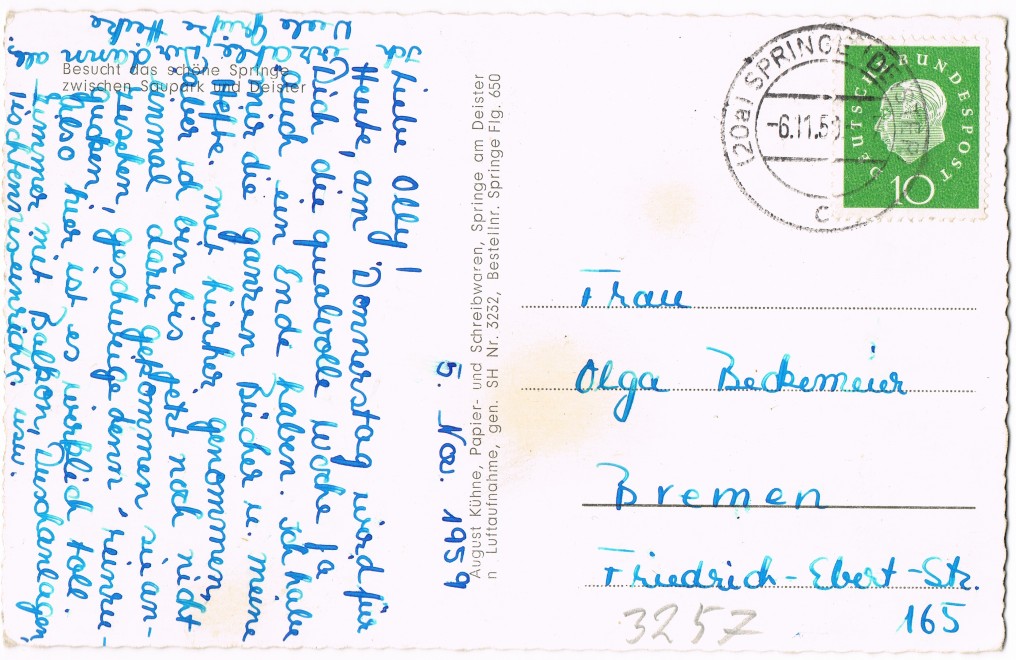 Besucht das schöne Springe
zwischen Saupark und Deister
5. Nov. 1959
Liebe Olly!
Heute, am Donnerstag wird für
Dich die qualvolle Woche ja
auch ein Ende haben. Ich habe
mir die ganzen Bücher u. meine
Hefte mit hierher genommen,
aber ich bin bis jetzt noch nicht
einmal dazu gekommen sie an-
zusehen, geschweige denn reinzu-
gucken. Also hier ist es wirklich toll.
Zimmer mit Balkon,
usw.
Ich
erzähle
Dir
dann
alles.
Viele
Grüße
Heike
August Kühne, Papier- und Schreibwaren, Springe am Deister
n Luftaufnahme, gen. SH Nr. 3232, Bestellnr. Springe Flg. 650
(20a) SPRINGE (DEISTER)
-6.11.59
c
DEUTSCHE BUNDESPOST
10
Frau
Olga Beckemeier
Bremen
Friedrich-Ebert-Str.
165
3257